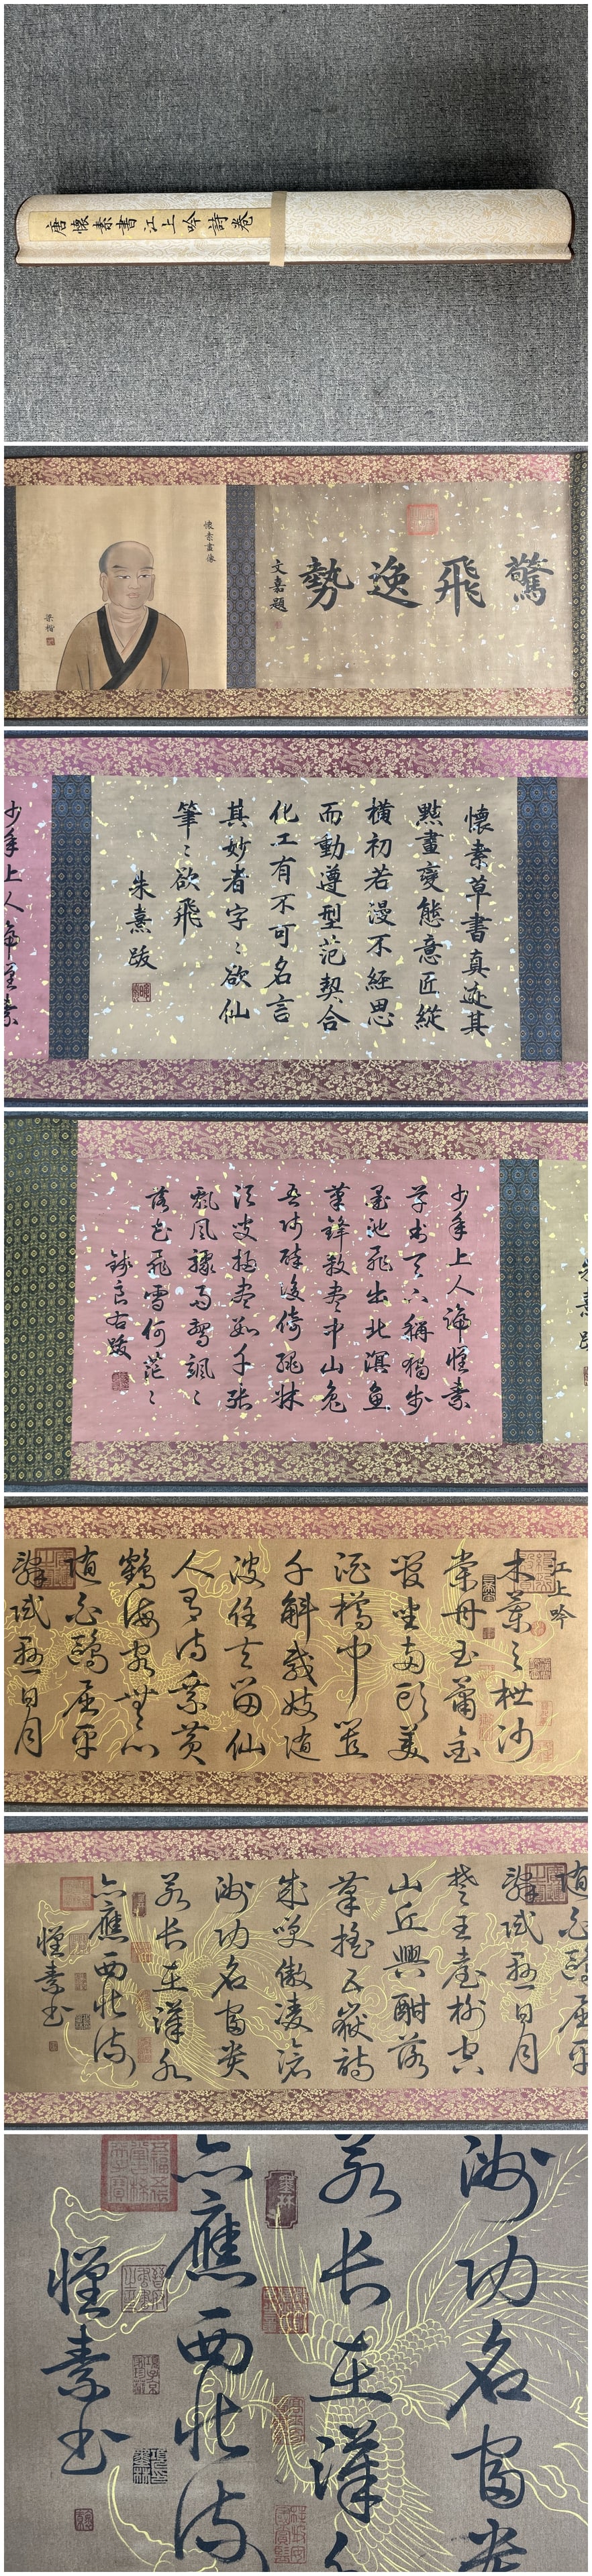 唐懷素書江上吟詩卷
驚飛逸勢
文嘉題
懷素畫像
梁楷
懷素草書真迹其
點畫變態意匠縱
橫初若漫不經思
而動遵型范契合
化工有不可名言
其妙者字〻欲仙
筆〻欲飛
朱熹跋
少年上人號懷素
朱熹跋
少年上人號懷素
草書天下稱獨步
墨池飛出北溟魚
筆鋒殺盡中山兔
吾師醉後倚繩牀
須臾掃盡數千張
飄風驟雨驚颯〻
落花飛雪何茫〻
錢良右跋
江上吟
木蘭之枻沙
棠舟玉簫金
管坐兩頭美
酒樽中置
千斛載妓隨
波任去留仙
人有待乘黃
鶴海客無心
隨白鷗屈平
辭賦懸日月
隨白鷗屈平
辭賦懸日月
楚王臺榭空
山丘興酣落
筆搖五嶽詩
成笑傲凌滄
洲功名富貴
若長在漢水
亦應西北流
懷素书
洲功名富貴
若長在漢
墨林
亦應西北流
懷素书